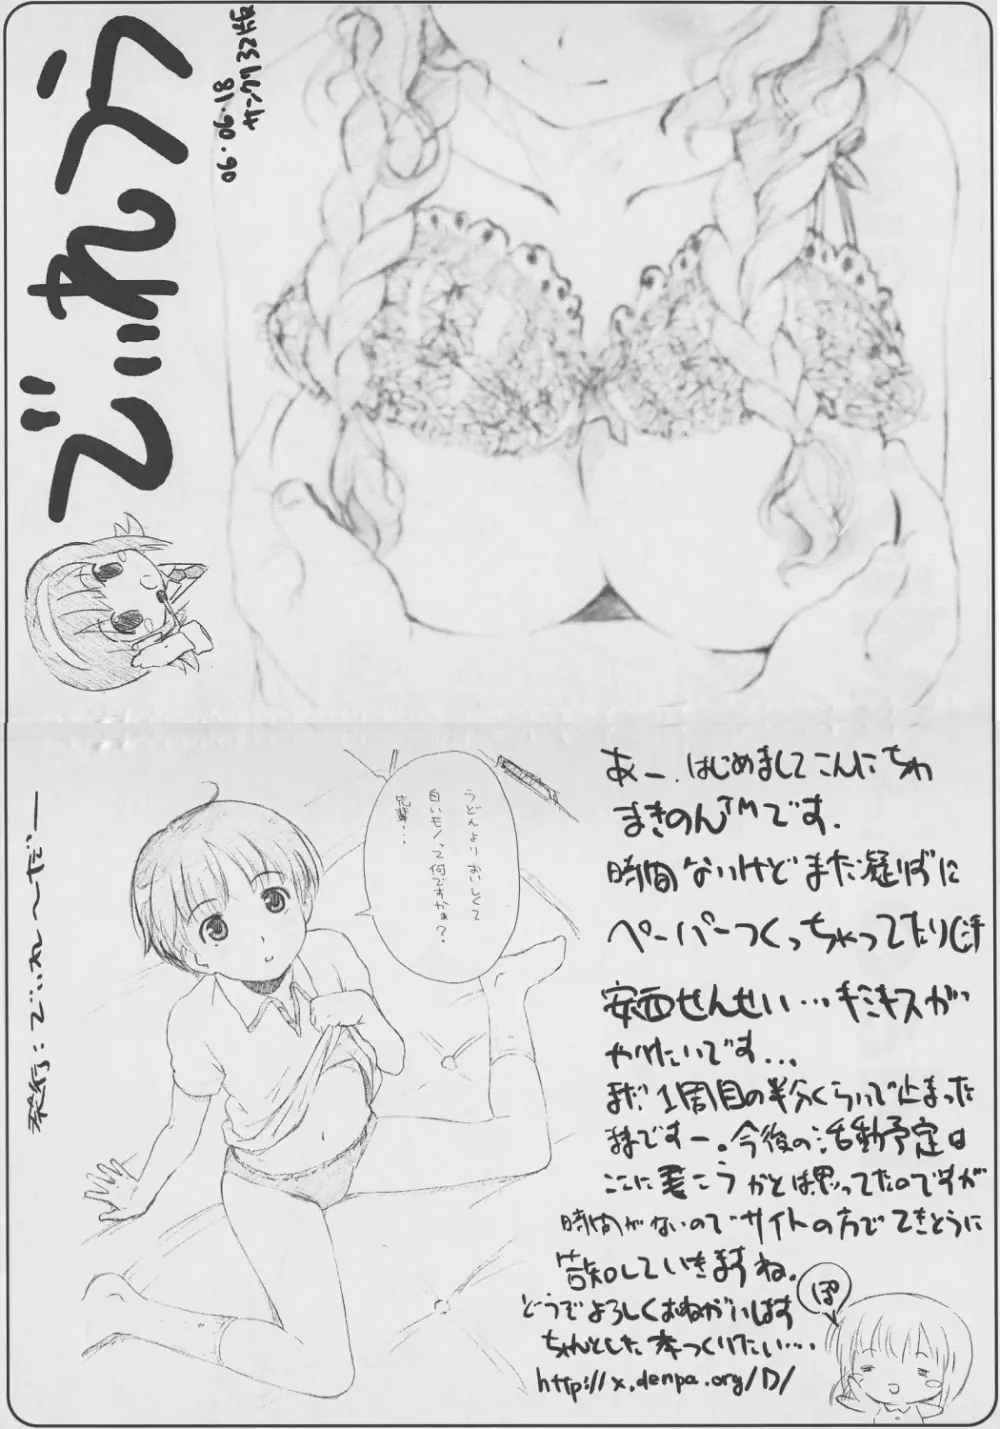 でいれう
06.06.18
サンクリ32版
うどんよりおいしくて
白いモノって何ですかぁ?
先輩・・
発行:でいれ〜だー
あー、はじめましてこんにちわ
まきのん™です.
時間ないけどまた凝りずに
ペーパーつくっちゃってたり(汗
安西せんせい…キミキスが
やりたいです…
まだ1周目の半分くらいで止まった
ままですー。今後の活動予定は
ここに書こうかとは思ってたのですが
時間がないのでサイトの方でてきとうに
告知していきますね。
どうぞよろしくおねがいします
ちゃんとした本つくりたい‥‥
ぽ
http://x.denpa.org/D/